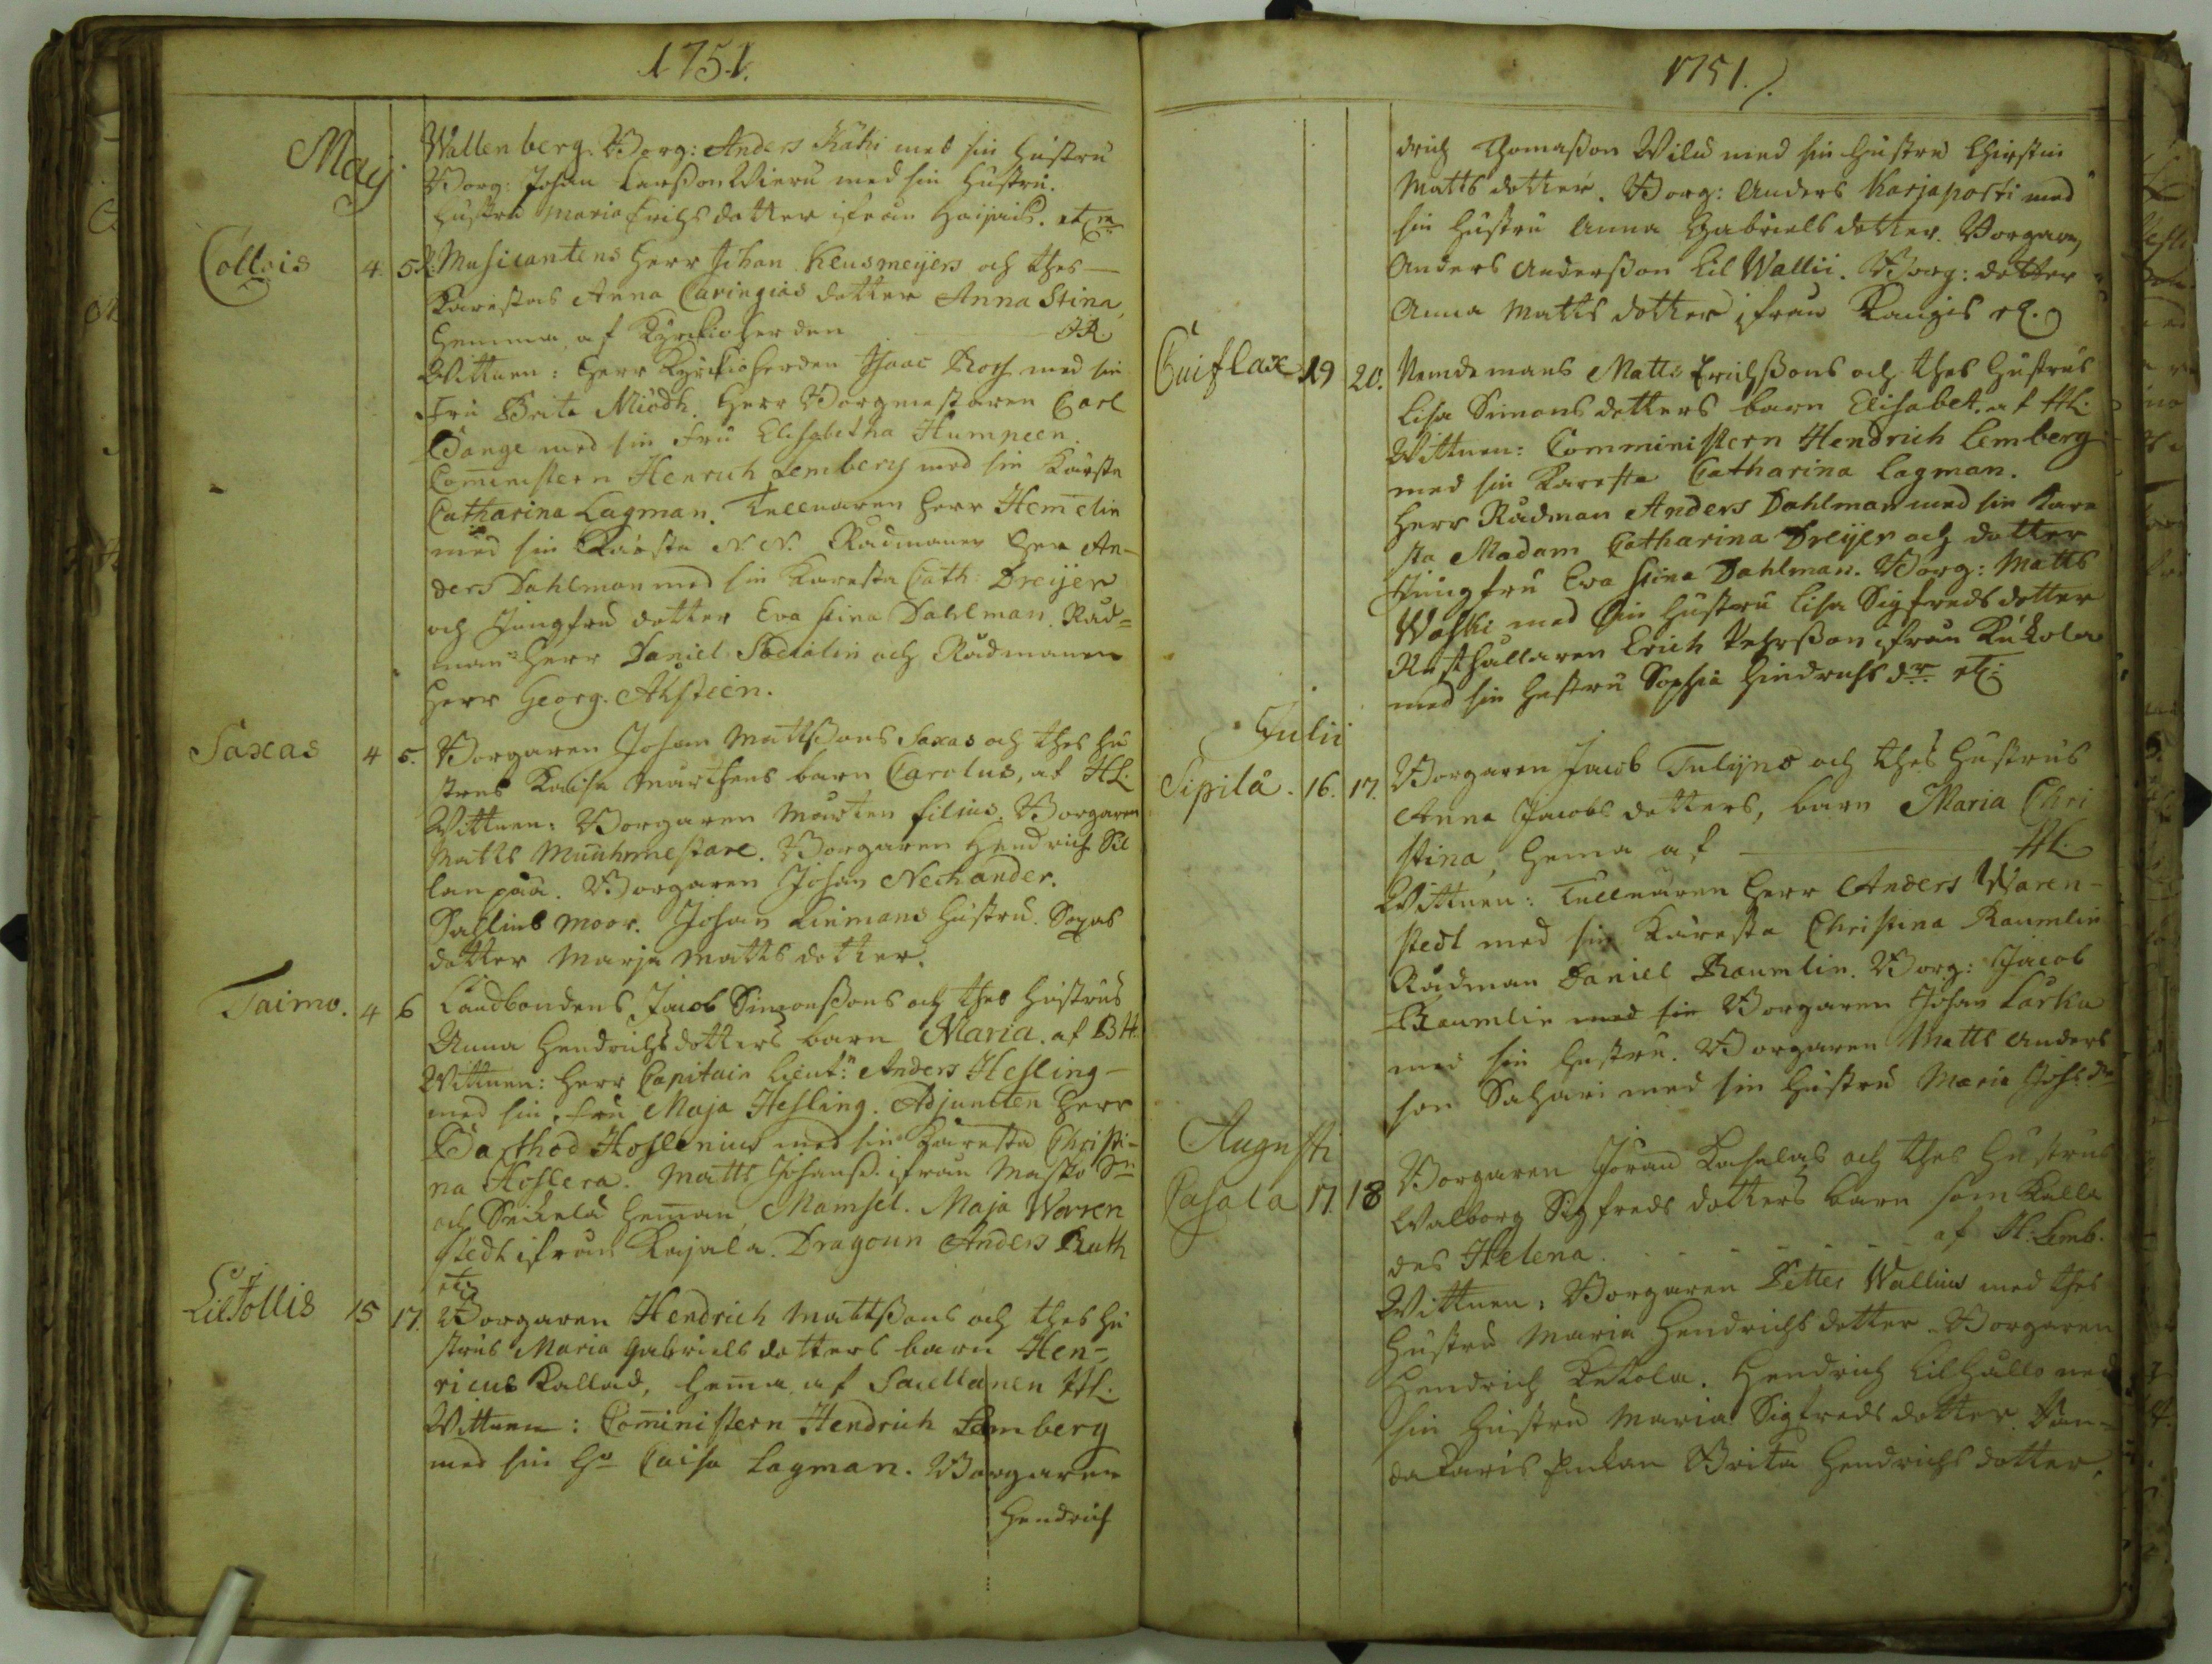 1751.
Maij
Wallenberg. Borg: Anders Kåhi med sin hustru
Borg: Johan Larsson Wieru med sin hustru.
hustru Maria Erichs dotter ifrån Haijais. etc
Collois 4. 5. Musicantens Herr Johan Keusmeijers och thes
Kärestas Anna Caringias dotter Anna Stina,
hemma af Kyrkioherden IR.
Wittnen: Herr Kyrkioherden Isaac Ross med sin
Fru Brita Miödh. Herr Borgmestaren Carl
Bange med sin Fru Elisabetha Humpeen.
Comministern Henrich Lemberg med sin Kärsta
Catharina Lagman. Tullnaren Herr Hemelin
med sin Kärsta N. N. Rådmannen Herr An-
ders Dahlman med sin Käresta Cath: Dreijer
och Jungfru dotter Eva Stina Dahlman. Råd=
man Herr Daniel Sacklin och Rådmannen
Herr Georg. Ahlsteen.
Saxas 4 5. Borgaren Johan Mattssons Saxas och thes hu
strus Kaisa Mårthens barn Carolus, af HL.
Wittnen: Borgaren Mårten Filius. Borgaren
Matts Muuhrmestare. Borgaren Hendrich Sil
lanpää. Borgaren Johan Nechander.
Sahlins Moor. Johan Linmans hustru. Saxas
dotter Marja Matts dotter.
Taimo. 4 6 Landbondens Jacob Simonssons och thes hustrus
Anna Hendrichsdotters barn Maria. af BH.
Wittnen: Herr Capitain Lieut: Anders Hesling
med sin Fru Maja Hesling. Adjuncten Herr
Barthod Hoslenius med sin Käresta Christi-
na Hoslera. Matts Johanss. ifrån Masko Sn
och Seikelä hemman, Mamsel. Maja Waren
stedt ifrån Kajala. Dragoun Anders Ruth
etc
Lil Tollis 15 17. Borgaren Hendrich Mattssons och thes hu
strus Maria Gabriels dotters barn Hen-
ricus Kallad, hema af Saellanen HL.
Wittnen: Comini stern Hendrich Lemberg
med sin Hu Caisa Lagman. Borgaren
Hendrich
1751.
drich Thomasson Wilu med sin hustru Chirstin
Matts dotter. Borg: Anders Karjaposti med
sin hustru Anna Gabriels dotter. Borgaren
Anders Andersson Lil Wallii. Borg: dotter
Anna Matts dotter ifrån Kangis etc.
Cuiflax 19 20. Nemdemans Matts Erichssons och thes hustrus
Lisa Simons dotters barn Elisabet. af HL.
Wittnen: Commini stern Hendrich Lemberg
med sin Käresta Catharina Lagman.
Herr Rådman Anders Dahlman med sin Käre
sta Madam Catharina Dreijer och dotter
Jungfru Eva Stina Dahlman. Borg: Matts
Waski med sin hustru Lisa Sigfreds dotter
Rusthållaren Erich Pehrsson ifrån Kukola
med sin hustru Sophia Hindrichs dr etc:
Julii
Sipilä. 16. 17. Borgaren Jacob Tulijns och thes hustrus
Anna Jacobs dotters, barn Maria Chri
stina, hema af HL.
Wittnen: Tullnaren Herr Anders Waren-
stedt med sin Käresta Christina Raumlin
Rådman Daniel Raumlin. Borg: Jacob
Raumlin med sin Borgaren Johan Larka
med sin hustru. Borgaren Matts Anders
son Sahari med sin hustru Maria Johs dr
Augusti
Casala 17. 18 Borgaren Jöran Kaselas och thes hustrus
Walborg Sigfreds dotters barn som Kalla
des Helena. af H. Lemb.
Wittnen: Borgaren Petter Wallius med thes
hustru Maria Hendrichs dotter. Borgaren
Hendrich Kekola. Hendrich Lilhallo med
sin hustru Maria Sigfreds dotter.
Enkan Brita Hendrichs dotter.